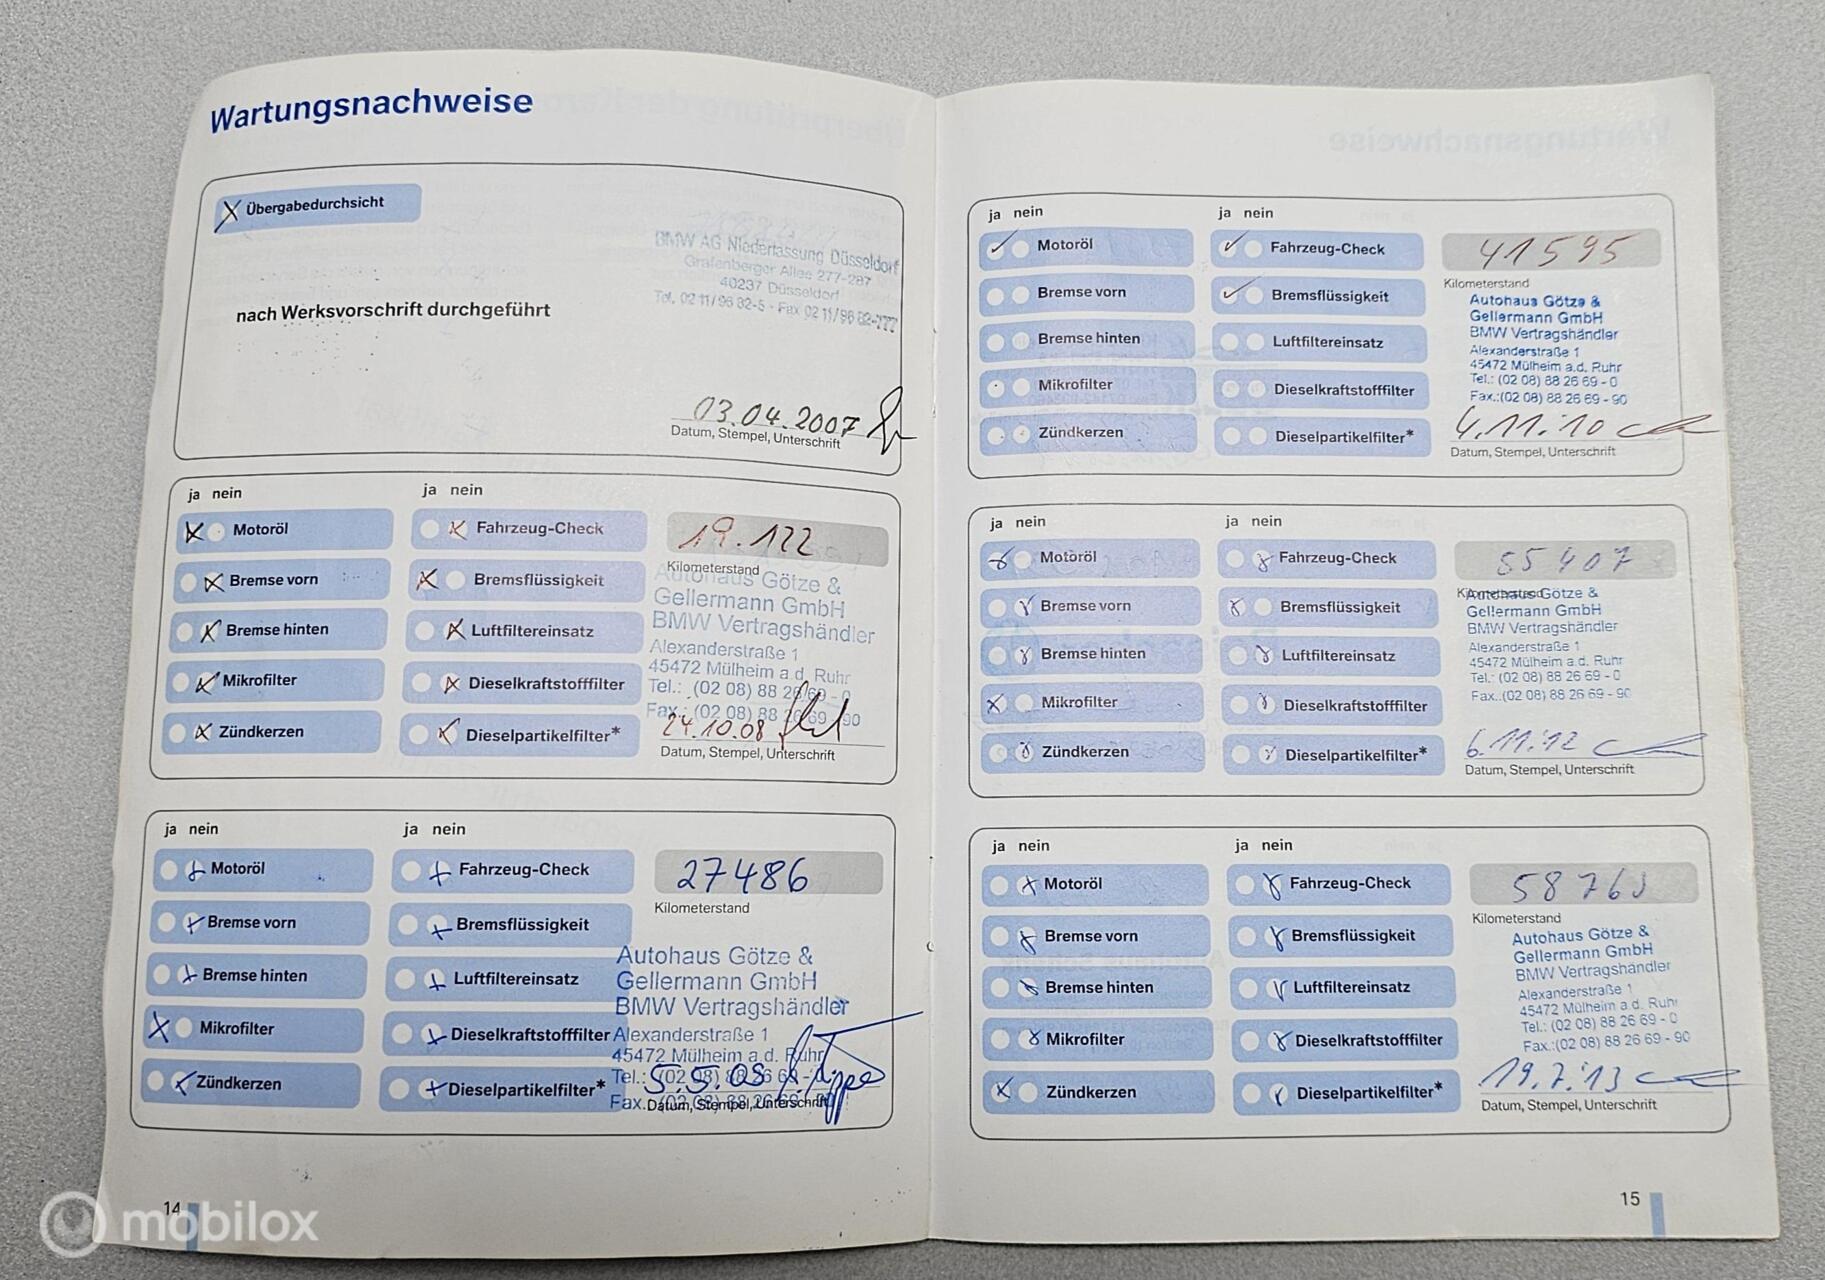 Wartungsnachweise
Übergabedurchsicht
BMW AG Niederlassung Düsseldorf
Grafenberger Allee 277-287
40237 Düsseldorf
Tel. 02 11/96 82-5 - Fax 02 11/96 82-777
nach Werksvorschrift durchgeführt
03.04.2007
Datum, Stempel, Unterschrift
ja nein
ja nein
Motoröl
Fahrzeug-Check
19.122
Kilometerstand
Bremse vorn
Bremsflüssigkeit
Autohaus Götze &
Gellermann GmbH
BMW Vertragshändler
Bremse hinten
Luftfiltereinsatz
Alexanderstraße 1
45472 Mülheim a.d. Ruhr
Mikrofilter
Dieselkraftstofffilter
Tel.: (02 08) 88 26 69 - 0
Fax.: (02 08) 88 26 69 - 90
Zündkerzen
Dieselpartikelfilter*
24.10.08
Datum, Stempel, Unterschrift
ja nein
ja nein
Motoröl
Fahrzeug-Check
27486
Kilometerstand
Bremse vorn
Bremsflüssigkeit
Autohaus Götze &
Gellermann GmbH
BMW Vertragshändler
Bremse hinten
Luftfiltereinsatz
Mikrofilter
Dieselkraftstofffilter
Alexanderstraße 1
45472 Mülheim a.d. Ruhr
Tel.: (02 08) 88 26 69 - 0
Fax.: (02 08) 88 26 69 - 90
Zündkerzen
Dieselpartikelfilter*
Datum, Stempel, Unterschrift
14
ja nein
ja nein
Motoröl
Fahrzeug-Check
41595
Kilometerstand
Bremse vorn
Bremsflüssigkeit
Autohaus Götze &
Gellermann GmbH
BMW Vertragshändler
Bremse hinten
Luftfiltereinsatz
Alexanderstraße 1
45472 Mülheim a.d. Ruhr
Tel.: (02 08) 88 26 69 - 0
Fax.:(02 08) 88 26 69 - 90
Mikrofilter
Dieselkraftstofffilter
Zündkerzen
Dieselpartikelfilter*
4.11.10
Datum, Stempel, Unterschrift
ja nein
ja nein
Motoröl
Fahrzeug-Check
55407
Kilometerstand
Bremse vorn
Bremsflüssigkeit
Autohaus Götze &
Gellermann GmbH
BMW Vertragshändler
Bremse hinten
Luftfiltereinsatz
Alexanderstraße 1
45472 Mülheim a.d. Ruhr
Tel.: (02 08) 88 26 69 - 0
Fax.:(02 08) 88 26 69 - 90
Mikrofilter
Dieselkraftstofffilter
Zündkerzen
Dieselpartikelfilter*
6.11.12
Datum, Stempel, Unterschrift
ja nein
ja nein
Motoröl
Fahrzeug-Check
Kilometerstand
Bremse vorn
Bremsflüssigkeit
Autohaus Götze &
Gellermann GmbH
BMW Vertragshändler
Bremse hinten
Luftfiltereinsatz
Alexanderstraße 1
45472 Mülheim a.d. Ruhr
Tel.: (02 08) 88 26 69 - 0
Fax.:(02 08) 88 26 69 - 90
Mikrofilter
Dieselkraftstofffilter
Zündkerzen
Dieselpartikelfilter*
19.7.13
Datum, Stempel, Unterschrift
15
mobilox